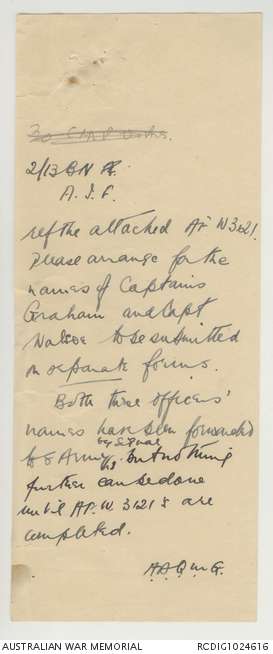 2/13 BN
A.I.F.
ref the attached AF W3121.
Please arrange for the
names of Captains
Graham and Capt
to be submitted
on separate forms.
Both these officers'
names have been forwarded
by signal
to 8 Army but nothing
further can be done
until AF. W. 3121's are
completed.
A.A.Q.M.G.
AUSTRALIAN WAR MEMORIAL
RCDIG1024616